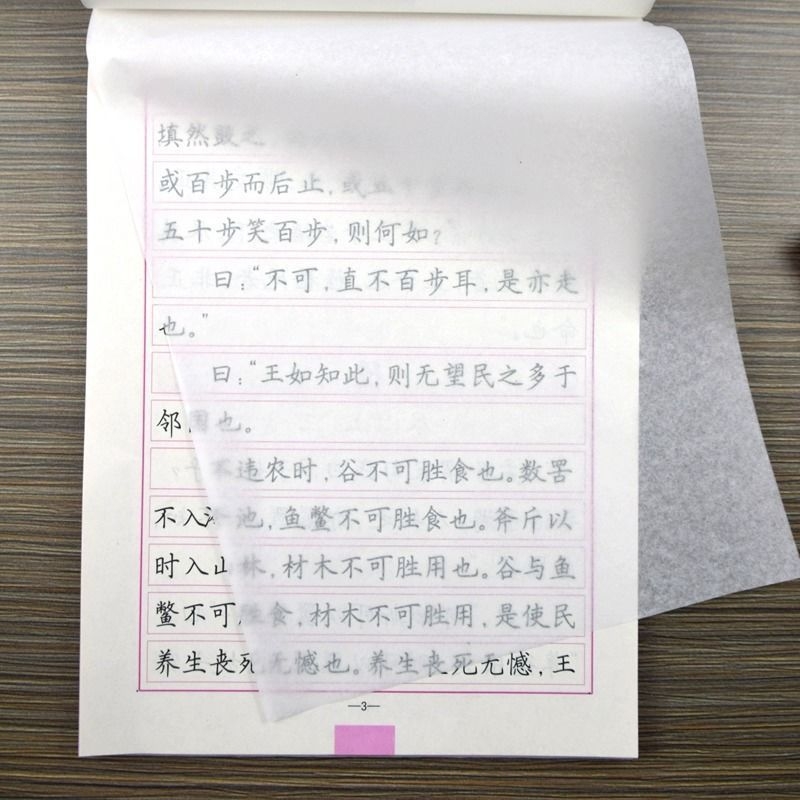 填然鼓之
或百步而后止，或五十步
五十步笑百步，则何如？”
曰：“不可，直不百步耳，是亦走
也。”
曰：“王如知此，则无望民之多于
邻国也。
不违农时，谷不可胜食也。数罟
不入洿池，鱼鳖不可胜食也。斧斤以
时入山林，材木不可胜用也。谷与鱼
鳖不可胜食，材木不可胜用，是使民
养生丧死无憾也。养生丧死无憾，王
—3—